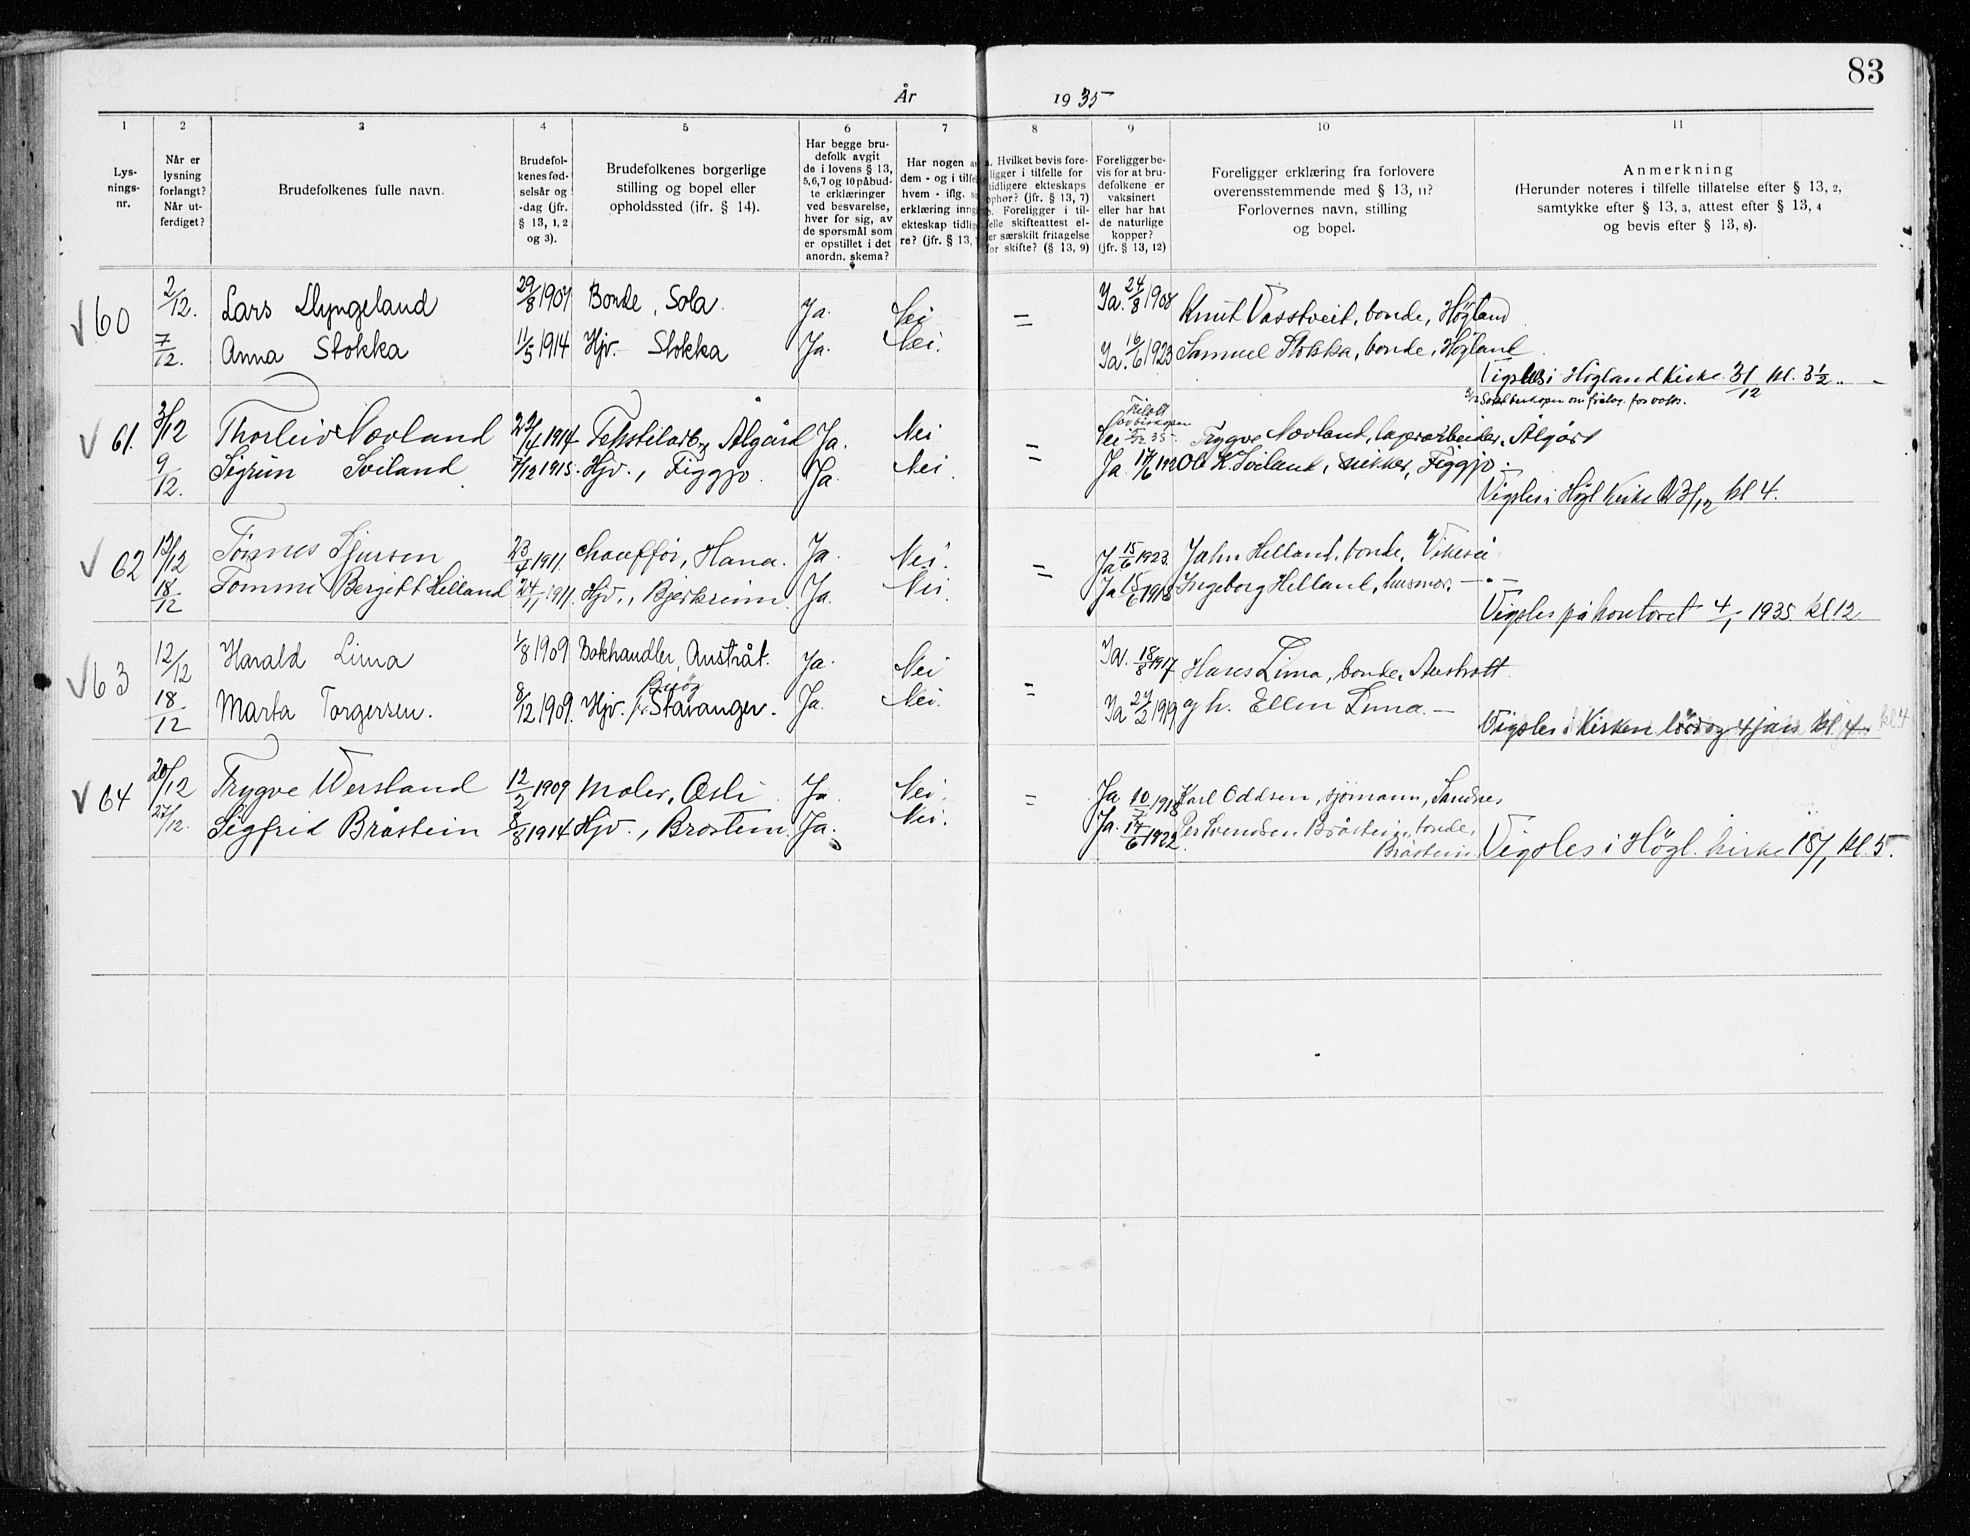 83
År 1935
1 2 3 4 5 6 7 8 9 10 11
Lysnings-nr.
Når er lysning forlangt? Når utferdiget?
Brudefolkenes fulle navn.
Brudefolkenes fødselsår og -dag (jfr. § 13, 1, 2 og 3).
Brudefolkenes borgerlige stilling og bopel eller opholdssted (ifr. § 14).
Har begge brudefolk avgit de i lovens § 13, 5, 6, 7 og 10 påbudte erklæringer ved besvarelse, hver for sig, av de spørsmål som er opstillet i det anordn. skema?
Har nogen a
dem - og i tilfe
hvem - iflg. s
erklæring inng
ekteskap tidli
re? (jfr. § 13,
Hvilket bevis fore-
ligger i tilfelle for
tidligere ekteskaps
ophør? (jfr. § 13, 7)
b. Foreligger i til-
felle skifteattest el-
ler særskilt fritagelse
for skifte? (§ 13, 9)
Foreligger bevis for at brudefolkene er vaksinert eller har hat de naturlige kopper? (jfr. § 13, 12)
Foreligger erklæring fra forlovere overensstemmende med § 13, 11? Forlovernes navn, stilling og bopel.
Anmerkning
(Herunder noteres i tilfelle tillatelse efter § 13, 2, samtykke efter § 13, 3, attest efter § 13, 4 og bevis efter § 13, 8).
√60 2/12. Lars Llyngeland 29/8 1907 Bonde, Sola. Ja. Nei = Ja. 24/8 1908 Knut Vasstveit, bonde, Høgland
7/12. Anna Stokka 11/5 1914 Hjv. Stokka Ja. Nei. Ja. 16/6 1923 Samuel Stokka, bonde, Høgland.
Vigsles i Høgland Kirke 31/12 kl. 3½
√61. 3/12 Thorleiv Nævland 1914 Tekstilarb. Ålgård Ja. Nei = Nei Trygve Nævland, lagerarbeider, Ålgård
9/12. Sigrun Sviland 7/12 1915. Hjv., Figgjo. Ja. Nei. Ja. 17/6 1920 K. Sviland, snikker, Figgjo.
Vigsles i Høgl Kirke 23/12 kl 4.
√62 13/12 Tønnes Sjursen 23/4 1911, chauffør, Hana. Ja. Nei. = Ja 15/6 1923. Jahn Helland, bonde, Vikeså
18/12 Tommi Bergitt Helland 24/11 1911. Hjv., Bjerkreim. Ja. Nei. Ja 15/6 1918 Ingeborg Helland, husmor. — " —
Vigsles på kontoret 4/1 1935. kl. 12
√63 12/12 Harald Lima 1/8 1909 Bokhandler, Austråt. Ja. Nei = Ja. 18/8 1917 Hans Lima, bonde, Austrått.
18/12 Marta Torgersen. 8/12 1909. Hjv. Stavanger. Ja. Nei. Ja 2/2 1919 gh. Ellen Lima. —
Vigsles i Kirken lørdag 4 jan kl. 4 kl 4
√64 20/12 Trygve Wersland 12/2 1909 Maler, Oslo Ja Nei. = Ja 10/7 1918 Karl Oddsen, sjømann, Sandnes
27/12. Sigfrid Bråstein 8/8 1914 Hjv., Brostein. Ja. Nei. Ja. 17/6 1922. Per Svendsen Bråstein, bonde,
Bråstein. Vigsles i Høgl. kirke 18/1 kl. 5.